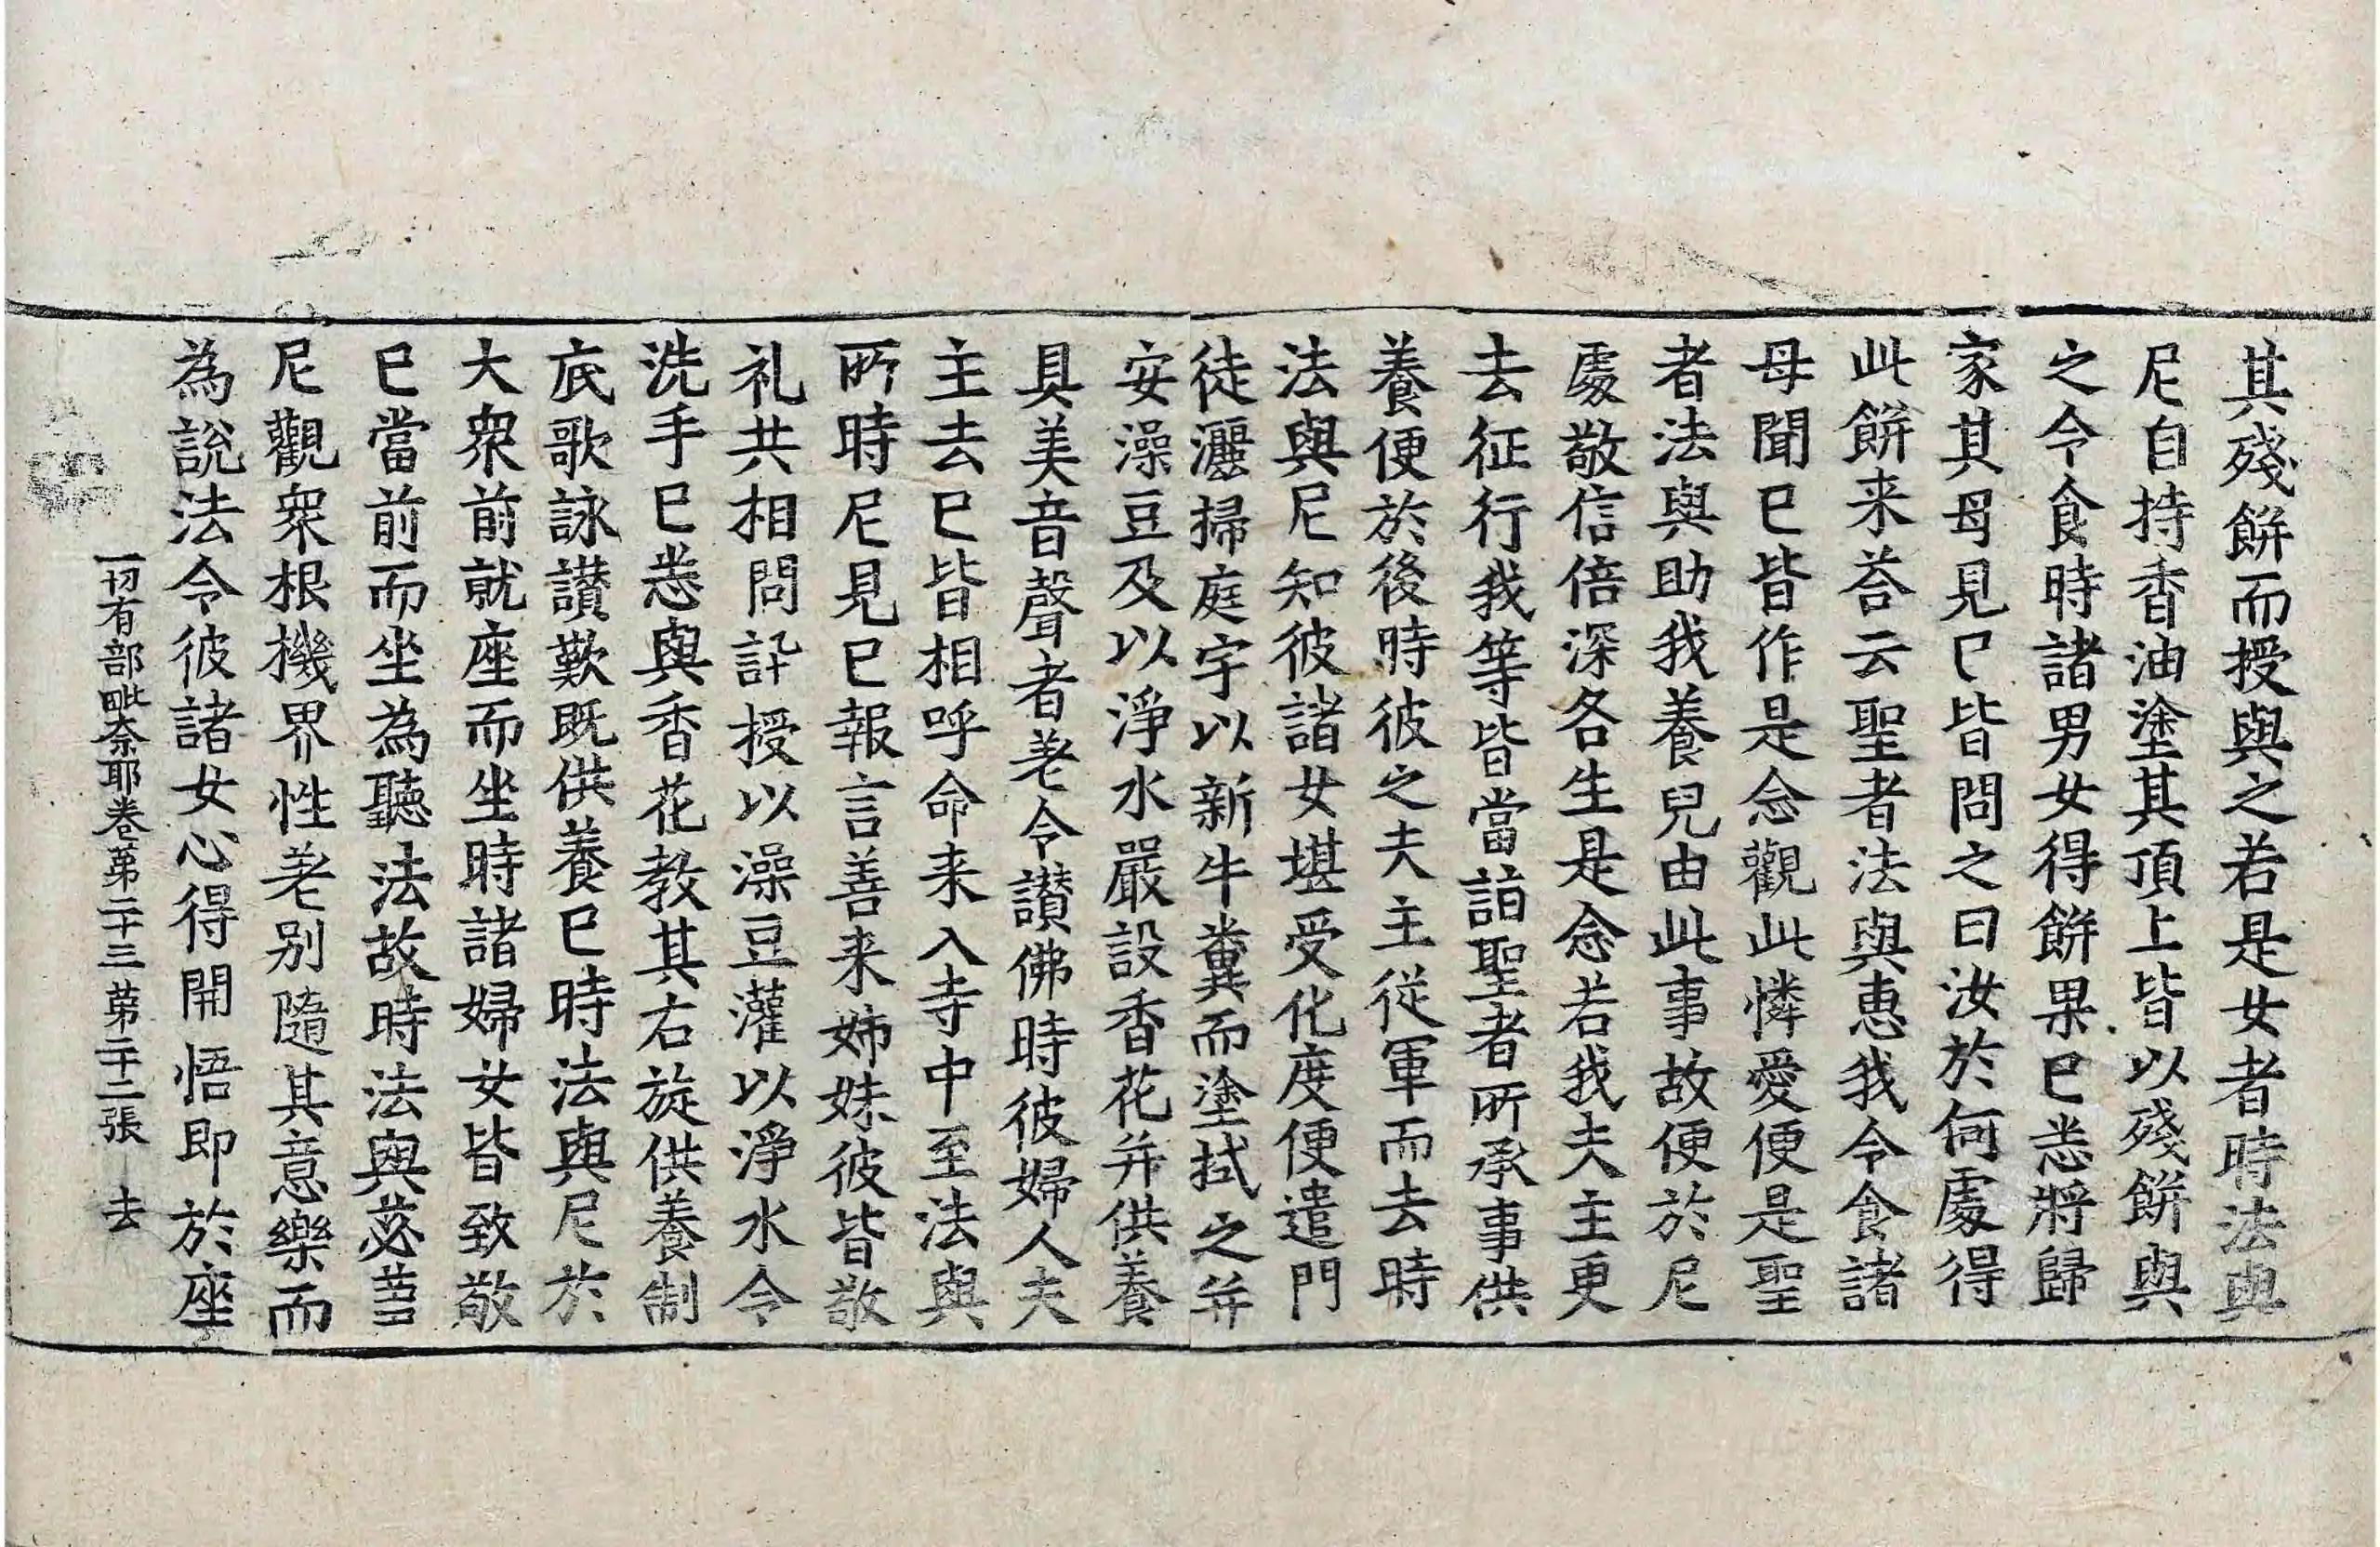 其殘餅而授與之若是女者時法與
尼自持香油塗其頂上皆以殘餅與
之令食時諸男女得餅果已悉將歸
家其母見已皆問之曰汝於何處得
此餅来荅云聖者法與惠我令食諸
母聞已皆作是念觀此憐愛便是聖
者法與助我養兒由此事故便於尼
處敬信倍深各生是念若我夫主更
去征行我等皆當詣聖者所承事供
養便於後時彼之夫主從軍而去時
法與尼知彼諸女堪受化度便遣門
徒灑掃庭宇以新牛糞而塗拭之并
安澡豆及以淨水嚴設香花并供養
具美音聲者差令讃佛時彼婦人夫
主去已皆相呼命来入寺中至法與
所時尼見已報言善来姉妹彼皆敬
礼共相問訊授以澡豆灌以淨水令
洗手已悉與香花教其右旋供養制
底歌詠讃歎既供養已時法與尼於
大衆前就座而坐時諸婦女皆致敬
已當前而坐為聽法故時法與苾芻
尼觀衆根機界性差別隨其意樂而
為說法令彼諸女心得開悟即於座
一切有部毗奈耶卷第二十三 第二十二張 去